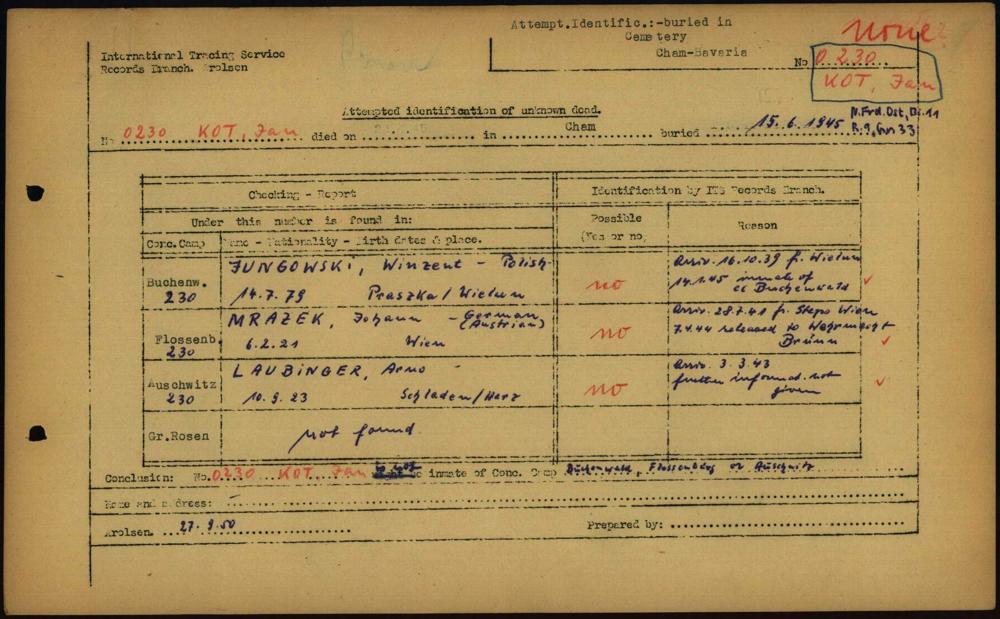 Attempt.Identific.:-buried in
Cemetery
Cham-Bavaria
None
International Tracing Service
Records Branch. Arolsen
No 0.230
KOT, Jan
Attempted identification of unknown dead.
No 0230 KOT, Jan died on in Cham buried 15.6.1945
R.9, 33
Checking - Report Identification by ITS Records Branch.
Under this number is found in: Possible (Yes or no) Reason
Conc.Camp Name - Nationality - Birth dates & place.
Buchenw. 230
JUNGOWSKI, Winzent - Polish
14.7.79 Praszka/Wielun
no
Arriv. 16.10.39 fr. Wielun
14.1.45 inmate of
cc Buchenwald
Flossenb. 230
MRAZEK, Johann - German (Austrian)
6.2.21 Wien
no
Arriv. 28.7.41 fr. Stapo Wien
7.4.44 released to Wehrmacht
Brünn
Auschwitz 230
LAUBINGER, Arno
10.9.23 Schladen/Harz
no
Arriv. 3.3.43
further informat. not
given
Gr.Rosen not found
Conclusion: No. 0230 KOT, Jan is not inmate of Conc. Camp Buchenwald, Flossenbürg or Auschwitz
Name and address: -
Arolsen. 27.9.50 Prepared by: